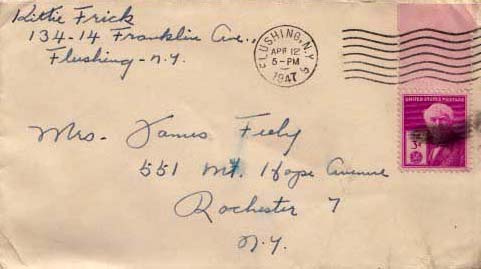 Kittie Frick
134-14 Franklin Ave.,
Flushing - N.Y.
FLUSHING, N.Y.
APR 12
5-PM
1947
UNITED STATES POSTAGE
3¢
Mrs. James Feely
551 Mt. Hope Avenue
Rochester 7
N.Y.